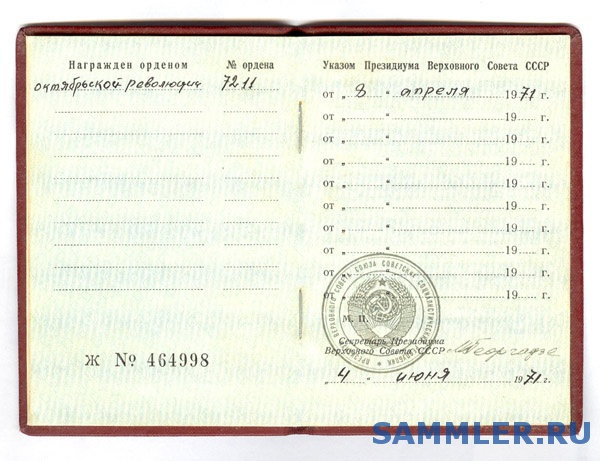 Награжден орденом № ордена
октябрьской революции 7211
Ж № 464998
Указом Президиума Верховного Совета СССР
от „ 8 “ апреля 1971 г.
от „ “ 19 г.
от „ “ 19 г.
от „ “ 19 г.
от „ “ 19 г.
от „ “ 19 г.
от „ “ 19 г.
от „ “ 19 г.
от „ “ 19 г.
от „ “ 19 г.
М. П.
Секретарь Президиума
Верховного Совета СССР МГеоргадзе
„ 4 “ июня 1971 г.
SAMMLER.RU